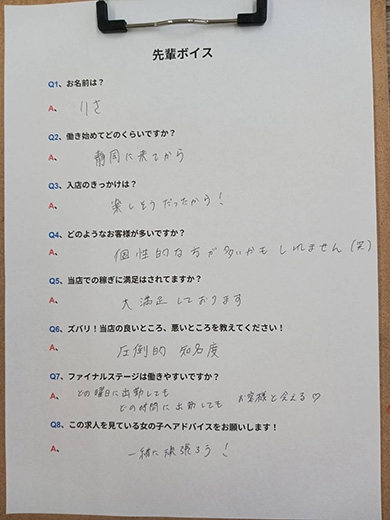 先輩ボイス
Q1、お名前は？
A、 りさ
Q2、働き始めてどのくらいですか？
A、 静岡に来てから
Q3、入店のきっかけは？
A、 楽しそうだったから！
Q4、どのようなお客様が多いですか？
A、 個性的な方が多いかもしれません（笑）
Q5、当店での稼ぎに満足はされてますか？
A、 大満足しております
Q6、ズバリ！当店の良いところ、悪いところを教えてください！
A、 圧倒的 知名度
Q7、ファイナルステージは働きやすいですか？
A、 どの曜日に出勤しても
どの時間に出勤しても お客様と会える♡
Q8、この求人を見ている女の子へアドバイスをお願いします！
A、 一緒に頑張ろう！